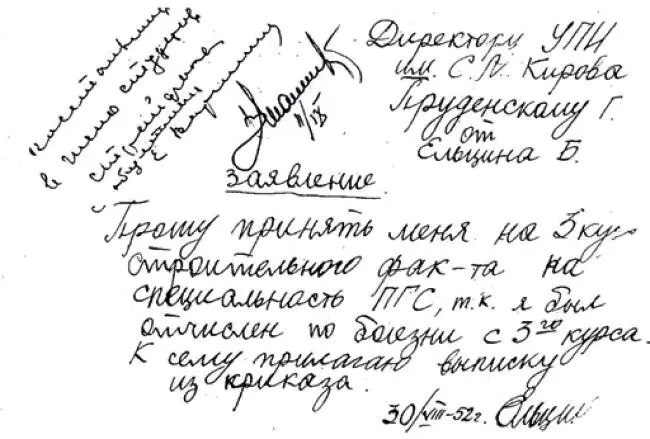 Директору УПИ
им. С.М. Кирова
Пруденскому Г.
от
Ельцина Б.
в число студентов
II/IX
заявление
Прошу принять меня на 3 кур
строительного фак-та на
специальность ПГС, т.к. я был
отчислен по болезни с 3го курса.
К сему прилагаю выписку
из приказа.
30/VIII-52г. Ельцин